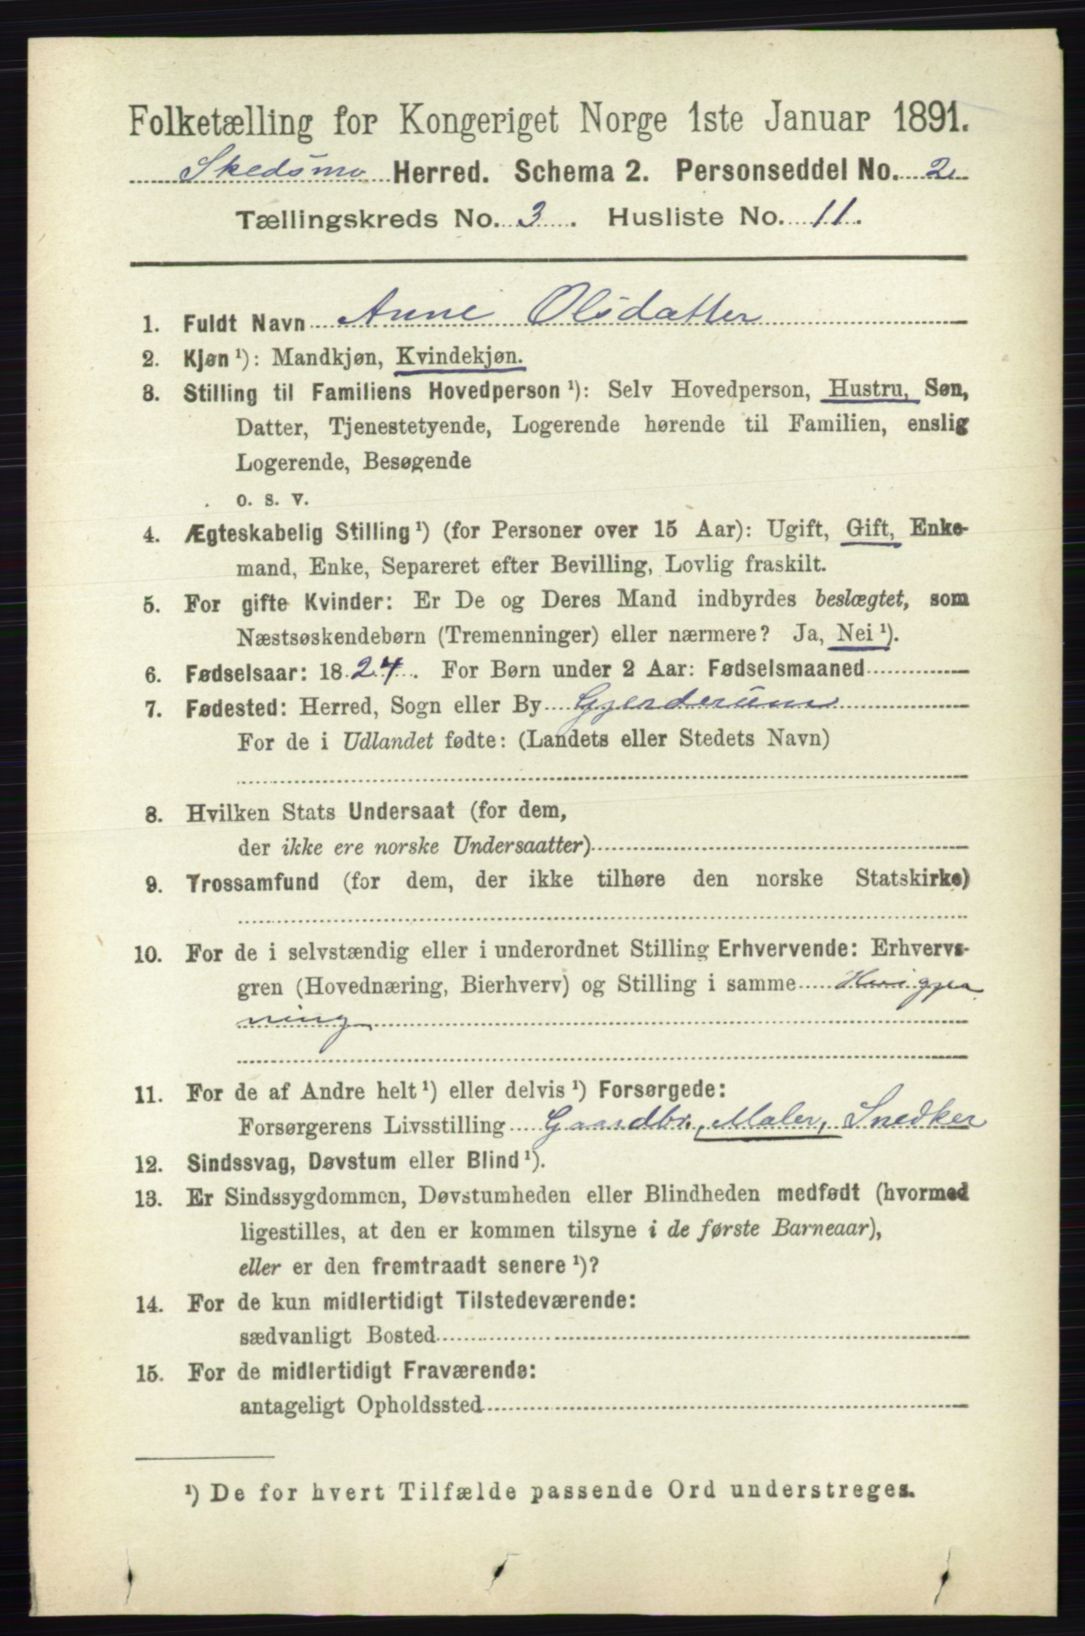 Folketælling for Kongeriget Norge 1ste Januar 1891.
Skedsmo Herred. Schema 2. Personseddel No. 2
Tællingskreds No. 3. Husliste No. 11.
1. Fuldt Navn Anne Olsdatter
2. Kjøn ¹): Mandkjøn, Kvindekjøn.
3. Stilling til Familiens Hovedperson ¹): Selv Hovedperson, Hustru, Søn,
Datter, Tjenestetyende, Logerende hørende til Familien, enslig
Logerende, Besøgende
o. s. v.
4. Ægteskabelig Stilling ¹) (for Personer over 15 Aar): Ugift, Gift, Enke-
mand, Enke, Separeret efter Bevilling, Lovlig fraskilt.
5. For gifte Kvinder: Er De og Deres Mand indbyrdes beslægtet, som
Næstsøskendebørn (Tremenninger) eller nærmere? Ja, Nei ¹).
6. Fødselsaar: 1824. For Børn under 2 Aar: Fødselsmaaned
7. Fødested: Herred, Sogn eller By Gjerderum
For de i Udlandet fødte: (Landets eller Stedets Navn)
8. Hvilken Stats Undersaat (for dem,
der ikke ere norske Undersaatter)
9. Trossamfund (for dem, der ikke tilhøre den norske Statskirke)
10. For de i selvstændig eller i underordnet Stilling Erhvervende: Erhvervs-
gren (Hovednæring, Bierhverv) og Stilling i samme Husgjer
ning
11. For de af Andre helt ¹) eller delvis ¹) Forsørgede:
Forsørgerens Livsstilling Gaardbr., Maler, Snedker
12. Sindssvag, Døvstum eller Blind ¹).
13. Er Sindssygdommen, Døvstumheden eller Blindheden medfødt (hvormed
ligestilles, at den er kommen tilsyne i de første Barneaar),
eller er den fremtraadt senere ¹)?
14. For de kun midlertidigt Tilstedeværende:
sædvanligt Bosted
15. For de midlertidigt Fraværende:
antageligt Opholdssted
¹) De for hvert Tilfælde passende Ord understreges.